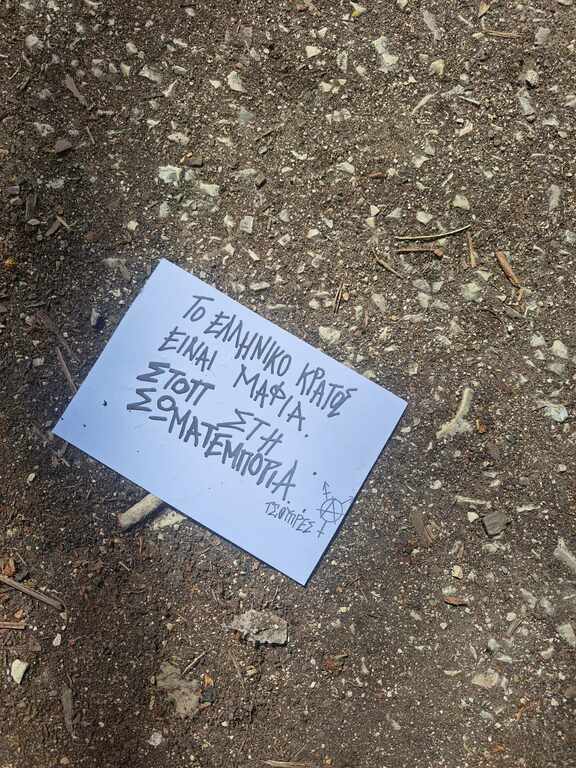 ΤΟ ΕΛΛΗΝΙΚΟ ΚΡΑΤΟΣ
ΕΙΝΑΙ ΜΑΦΙΑ.
ΣΤΟΠ ΣΤΗ
ΣΩΜΑΤΕΜΠΟΡΙΑ.
ΤΣΟΥΠΡΕΣ